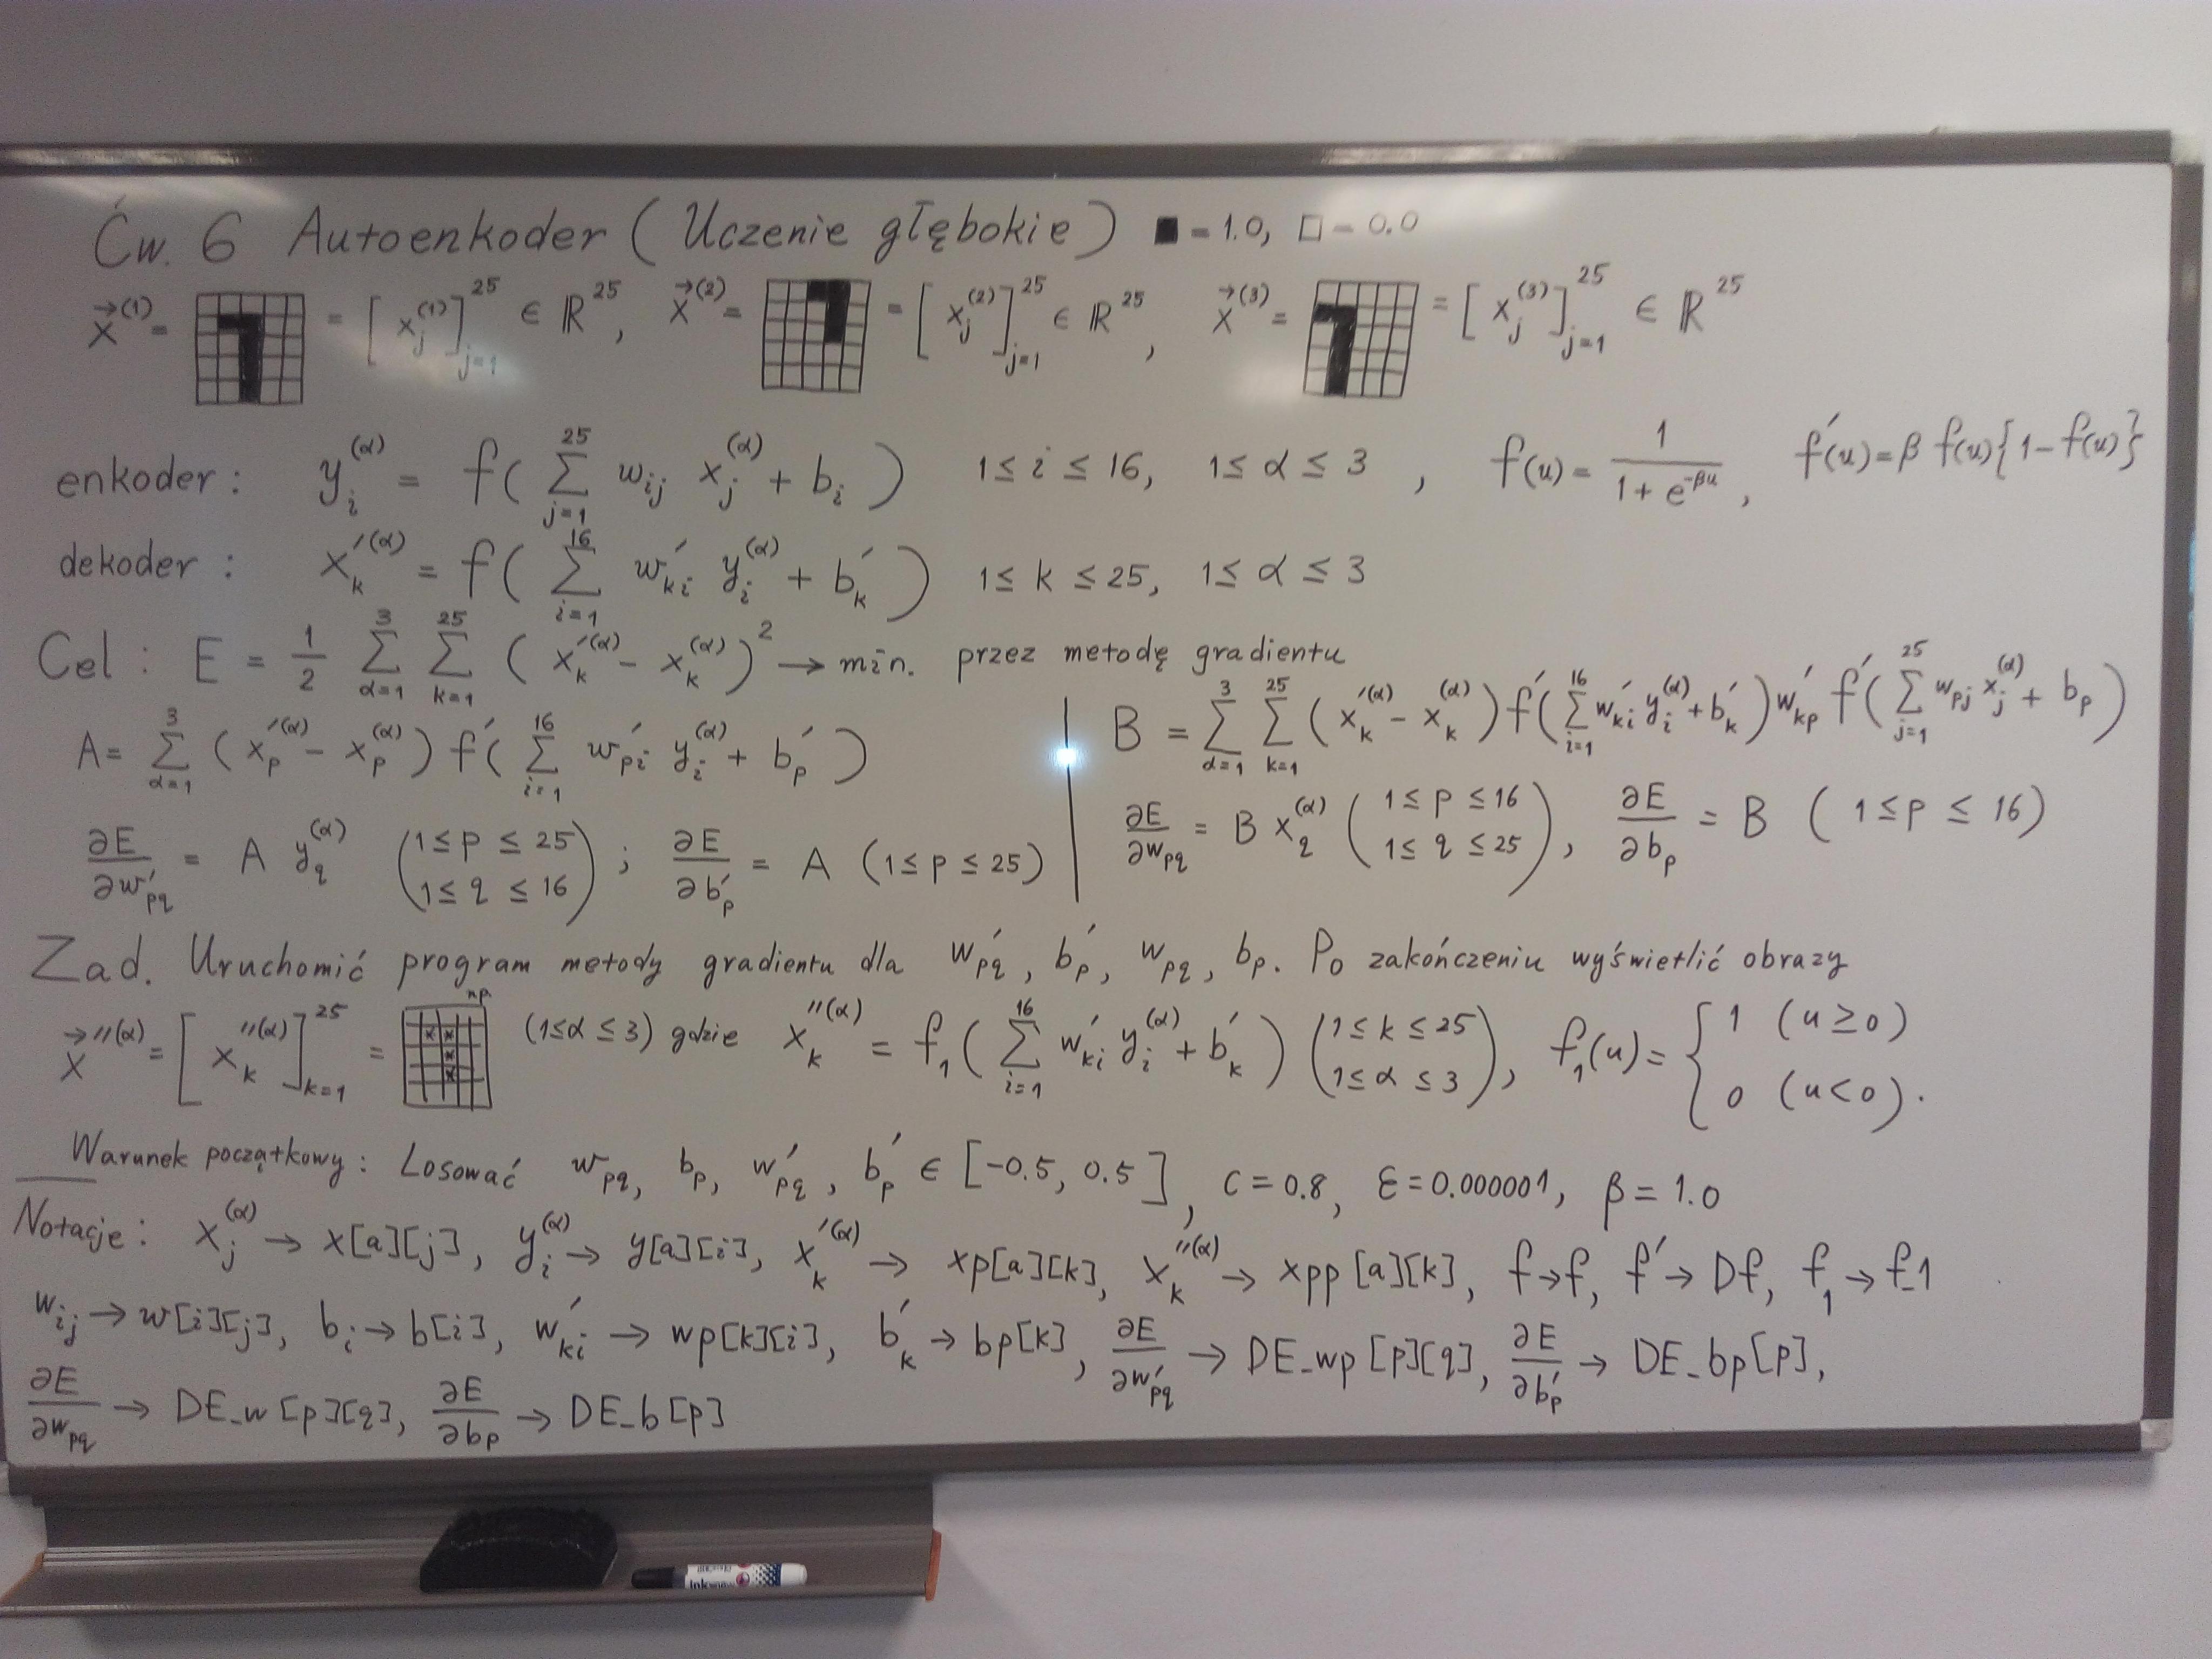 Ćw. 6 Autoenkoder (Uczenie głębokie) ■ = 1.0, □ = 0.0
x⃗^(1) = = [x_j^(1)]_{j=1}^{25} ∈ ℝ^25, x⃗^(2) = = [x_j^(2)]_{j=1}^{25} ∈ ℝ^25, x⃗^(3) = = [x_j^(3)]_{j=1}^{25} ∈ ℝ^25
enkoder: y_i^(α) = f( Σ_{j=1}^{25} w_ij x_j^(α) + b_i ) 1 ≤ i ≤ 16, 1 ≤ α ≤ 3, f(u) = 1 / (1 + e^{-βu}), f′(u) = β f(u){1 - f(u)}
dekoder: x′_k^(α) = f( Σ_{i=1}^{16} w′_ki y_i^(α) + b′_k ) 1 ≤ k ≤ 25, 1 ≤ α ≤ 3
Cel: E = 1/2 Σ_{α=1}^{3} Σ_{k=1}^{25} ( x′_k^(α) - x_k^(α) )^2 → min. przez metodę gradientu
A = Σ_{α=1}^{3} ( x′_p^(α) - x_p^(α) ) f′( Σ_{i=1}^{16} w′_pi y_i^(α) + b′_p )
∂E/∂w′_pq = A y_q^(α) (1 ≤ p ≤ 25, 1 ≤ q ≤ 16); ∂E/∂b′_p = A (1 ≤ p ≤ 25)
B = Σ_{α=1}^{3} Σ_{k=1}^{25} ( x′_k^(α) - x_k^(α) ) f′( Σ_{i=1}^{16} w′_ki y_i^(α) + b′_k ) w′_kp f′( Σ_{j=1}^{25} w_pj x_j^(α) + b_p )
∂E/∂w_pq = B x_q^(α) (1 ≤ p ≤ 16, 1 ≤ q ≤ 25), ∂E/∂b_p = B (1 ≤ p ≤ 16)
Zad. Uruchomić program metody gradientu dla w′_pq, b′_p, w_pq, b_p. Po zakończeniu wyświetlić obrazy
x⃗″^(α) = [x″_k^(α)]_{k=1}^{25} = np. (1 ≤ α ≤ 3) gdzie x″_k^(α) = f_1( Σ_{i=1}^{16} w′_ki y_i^(α) + b′_k ) (1 ≤ k ≤ 25, 1 ≤ α ≤ 3), f_1(u) = { 1 (u ≥ 0) 0 (u < 0).
Warunek początkowy: Losować w_pq, b_p, w′_pq, b′_p ∈ [-0.5, 0.5], c = 0.8, ε = 0.000001, β = 1.0
Notacje: x_j^(α) → x[a][j], y_i^(α) → y[a][i], x′_k^(α) → xp[a][k], x″_k^(α) → xpp[a][k], f → f, f′ → Df, f_1 → f_1
w_ij → w[i][j], b_i → b[i], w′_ki → wp[k][i], b′_k → bp[k], ∂E/∂w′_pq → DE_wp[p][q], ∂E/∂b′_p → DE_bp[p],
∂E/∂w_pq → DE_w[p][q], ∂E/∂b_p → DE_b[p]